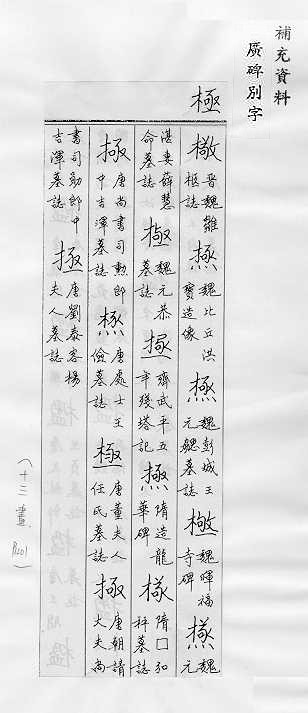 補充資料
廣碑別字
極
晉魏雛柩誌 極 魏比丘洪寶造像 極 魏彭城王元勰墓誌 極 魏暉福寺碑 極 魏元
湛妻薛慧命墓誌 極 魏元恭墓誌 極 齊武平五年殘塔記 極 隋造龍華碑 極 隋□弘秤墓誌
極 唐尚書司勲郎中吉渾墓誌 極 唐處士王儉墓誌 極 唐董夫人任氏墓誌 極 唐朝請大夫尚
書司勛郎中吉渾墓誌 極 唐劉泰客楊夫人墓誌
(十三畫 P.201)